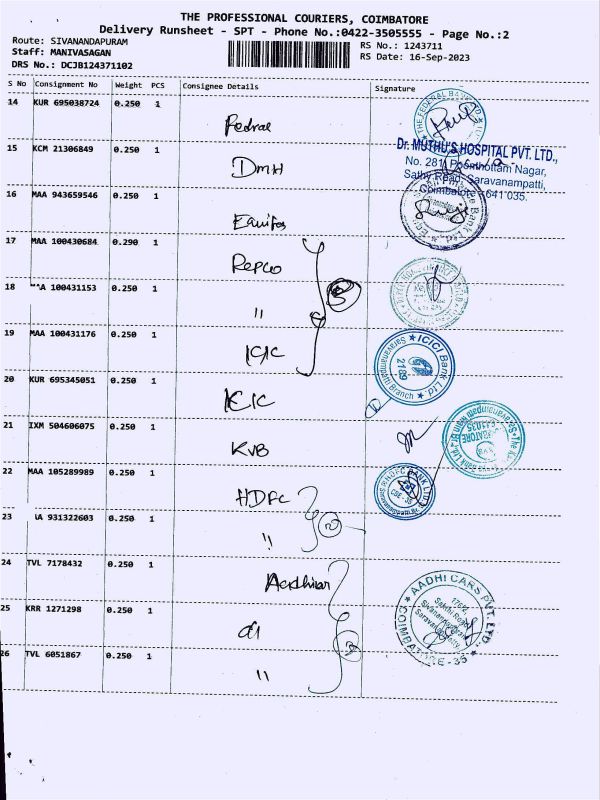 THE PROFESSIONAL COURIERS, COIMBATORE
Delivery Runsheet - SPT - Phone No.:0422-3505555 - Page No.:2
Route: SIVANANDAPURAM
Staff: MANIVASAGAN
DRS No.: DCJB124371102
RS No.: 1243711
RS Date: 16-Sep-2023
S No Consignment No Weight PCS Consignee Details Signature
14 KUR 695038724 0.250 1
Fedral
THE FEDERAL BANK LTD
15 KCM 21306849 0.250 1
DMH
Dr. MUTHU'S HOSPITAL PVT. LTD.,
No. 281, Poonthottam Nagar,
Sathy Road, Saravanampatti,
Coimbatore - 641 035.
16 MAA 943659546 0.250 1
Equitas
17 MAA 100430684 0.290 1
Repco
5
18 A 100431153 0.250 1
"
19 MAA 100431176 0.250 1
ICIC
ICICI Bank Ltd
2189
Saravanampatti Branch
20 KUR 695345051 0.250 1
ICIC
21 IXM 504606075 0.250 1
KVB
22 MAA 105289989 0.250 1
HDFC
HDFC BANK LTD
CBE - 35
23 AA 931322603 0.250 1
"
2
24 TVL 7178432 0.250 1
Aadhiar
AADHI CARS PVT. LTD.
COIMBATORE-35
25 KRR 1271298 0.250 1
3
26 TVL 6051867 0.250 1
"